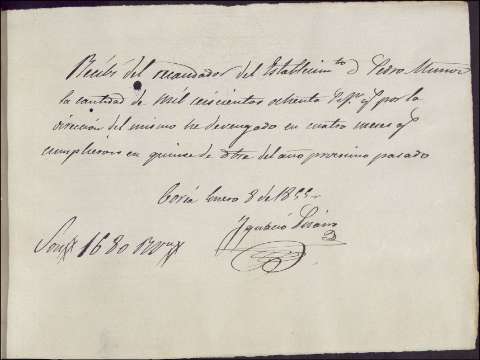 Recibí del recaudador del Establecimto d Pedro Muñoz
la cantidad de mil seiscientos ochenta rs qe por la
dirección del mismo he devengado en cuatro meses qe
cumplieron en quince de dbre del año procsimo pasado
Coria Enero 8 de 1855
Ygnacio
Son 1680 Rvn